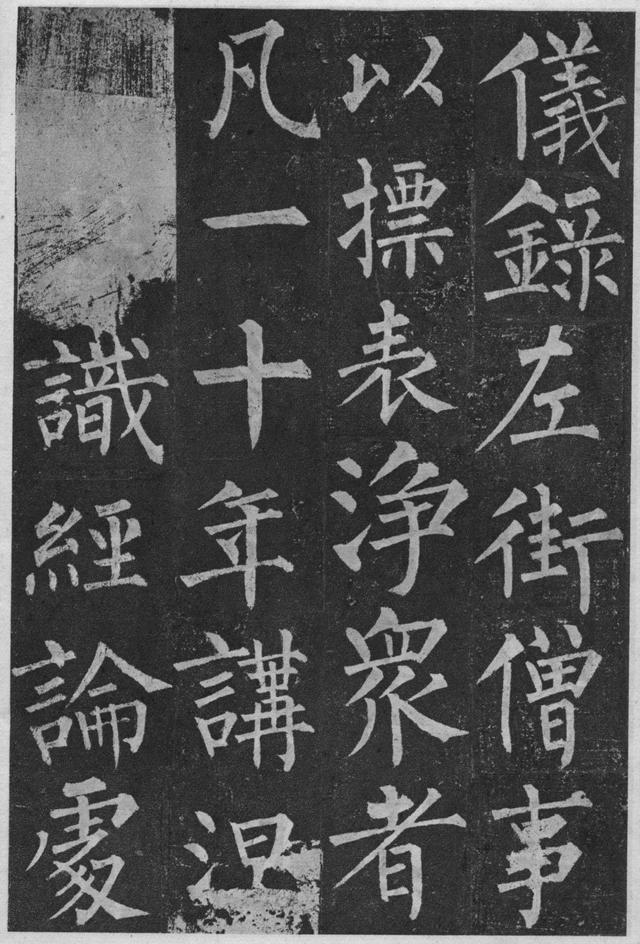 儀錄左街僧事
以摽表浄衆者
凡一十年講涅
識經論處